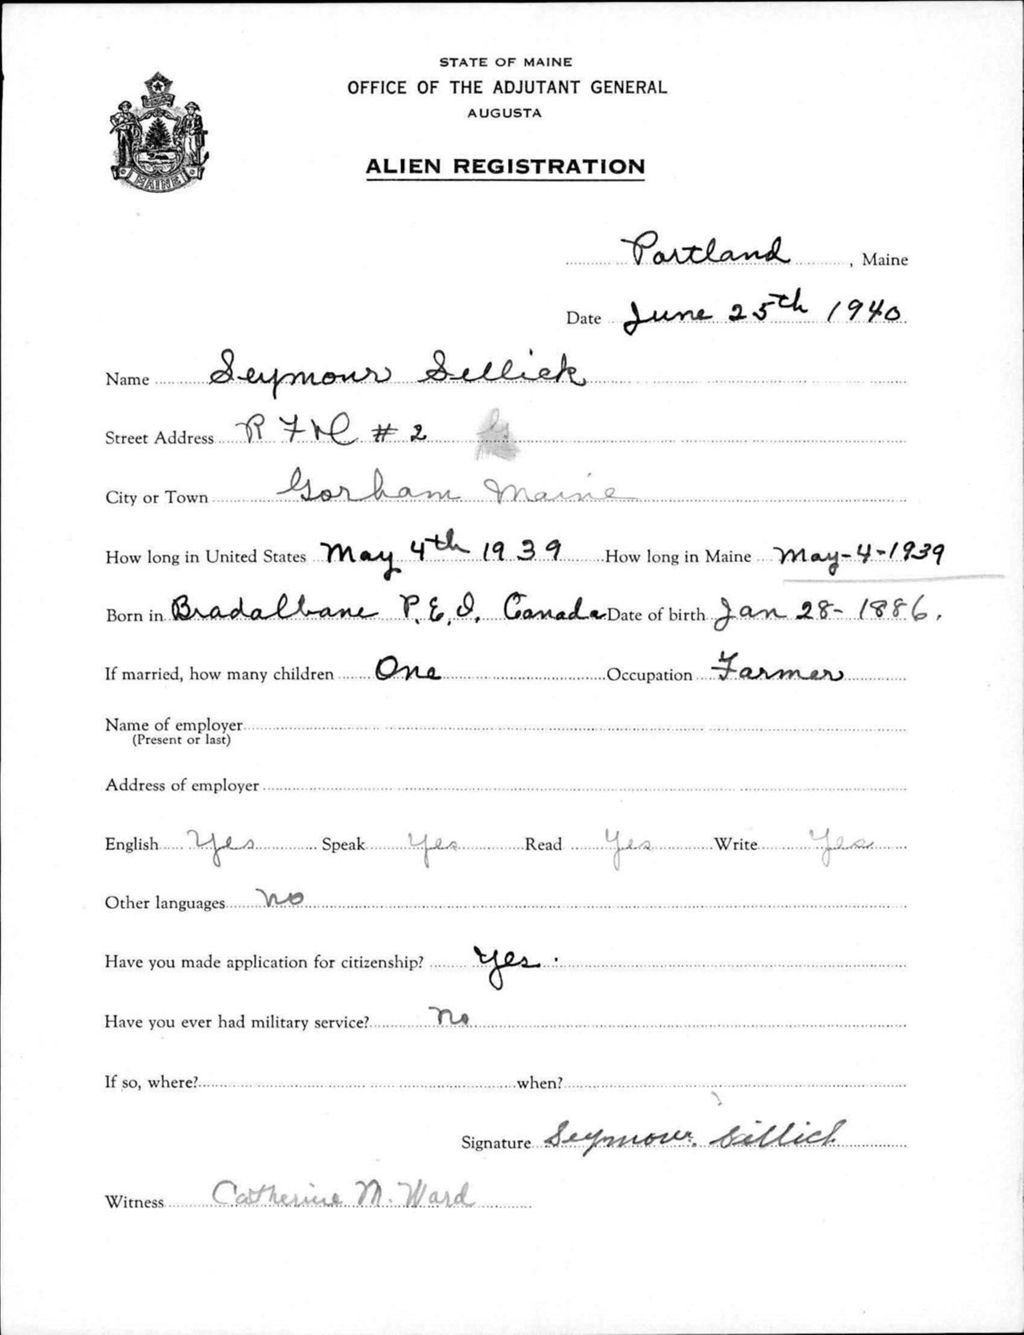 STATE OF MAINE
OFFICE OF THE ADJUTANT GENERAL
AUGUSTA
ALIEN REGISTRATION
MAINE
Portland, Maine
Date June 25th 1940
Name Seymour Sellick
Street Address R F D # 2
City or Town Gorham Maine
How long in United States May 4th 1939 How long in Maine May-4-1939
Born in Bradalbane P.E.I. Canada Date of birth Jan 28- 1886.
If married, how many children One Occupation Farmer
Name of employer
(Present or last)
Address of employer
English Yes Speak Yes Read Yes Write Yes
Other languages No
Have you made application for citizenship? Yes.
Have you ever had military service? No
If so, where? when?
Signature Seymour Sillick
Witness Catherine M. Ward